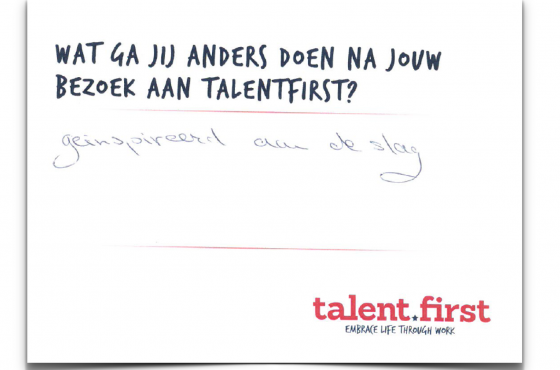 WAT GA JIJ ANDERS DOEN NA JOUW
BEZOEK AAN TALENTFIRST?
geïnspireerd aan de slag
talent.first
EMBRACE LIFE THROUGH WORK